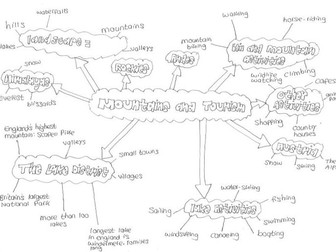 waterfalls
hills
mountains
Landscapes
lakes
valleys
snow
Himalayas
everest
blizzards
Rockies
Andes
walking
horse-riding
mountain
biking
Hill and mountain
activities
wildlife
watching
climbing
Other
activities
cafes
Shopping
county
houses
Mountains and Tourism
Austria
snow
skiing
The
England's highest
mountain: Scafell Pike
valleys
small towns
The Lake District
villages
Britains largest
National Park
more than two
lakes
longest lake
in england is
windermere: 
Lake activities
water-skiing
fishing
Sailing
swimming
windsurfing
canoeing
boating